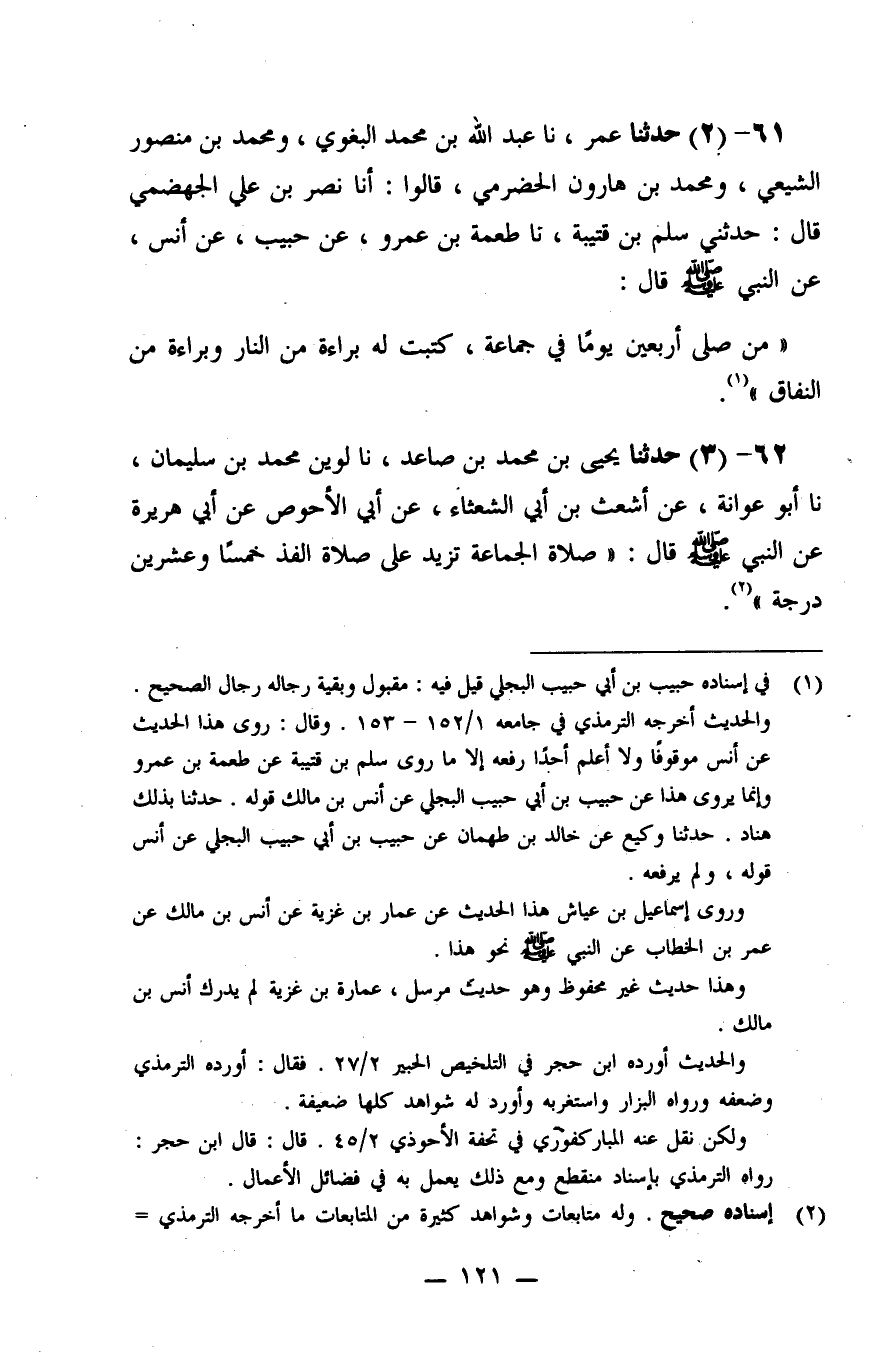 ٦١- (٢) حدثنا عمر ، نا عبد الله بن محمد البغوي ، ومحمد بن منصور
الشيعي ، ومحمد بن هارون الحضرمي ، قالوا : أنا نصر بن علي الجهضمي
قال : حدثني سلم بن قتيبة ، نا طعمة بن عمرو ، عن حبيب ، عن أنس ،
عن النبي ﷺ قال :
« من صلى أربعين يومًا في جماعة ، كتبت له براءة من النار وبراءة من
النفاق »(١).
٦٢- (٣) حدثنا يحيى بن محمد بن صاعد ، نا لوين محمد بن سليمان ،
نا أبو عوانة ، عن أشعث بن أبي الشعثاء ، عن أبي الأحوص عن أبي هريرة
عن النبي ﷺ قال : « صلاة الجماعة تزيد على صلاة الفذ خمسًا وعشرين
درجة »(٢).
(١) في إسناده حبيب بن أبي حبيب البجلي قيل فيه : مقبول وبقية رجاله رجال الصحيح .
والحديث أخرجه الترمذي في جامعه ١٥٢/١ – ١٥٣ . وقال : روى هذا الحديث
عن أنس موقوفًا ولا أعلم أحدًا رفعه إلا ما روى سلم بن قتيبة عن طعمة بن عمرو
وإنما يروى هذا عن حبيب بن أبي حبيب البجلي عن أنس بن مالك قوله . حدثنا بذلك
هناد . حدثنا وكيع عن خالد بن طهمان عن حبيب بن أبي حبيب البجلي عن أنس
قوله ، ولم يرفعه .
وروى إسماعيل بن عياش هذا الحديث عن عمار بن غزية عن أنس بن مالك عن
عمر بن الخطاب عن النبي ﷺ نحو هذا .
وهذا حديث غير محفوظ وهو حديث مرسل ، عمارة بن غزية لم يدرك أنس بن
مالك .
والحديث أورده ابن حجر في التلخيص الحبير ٢٧/٢ . فقال : أورده الترمذي
وضعفه ورواه البزار واستغربه وأورد له شواهد كلها ضعيفة .
ولكن نقل عنه المباركفوري في تحفة الأحوذي ٤٥/٢ . قال : قال ابن حجر :
رواه الترمذي بإسناد منقطع ومع ذلك يعمل به في فضائل الأعمال .
(٢) إسناده صحيح . وله متابعات وشواهد كثيرة من المتابعات ما أخرجه الترمذي =
— ١٢١ —